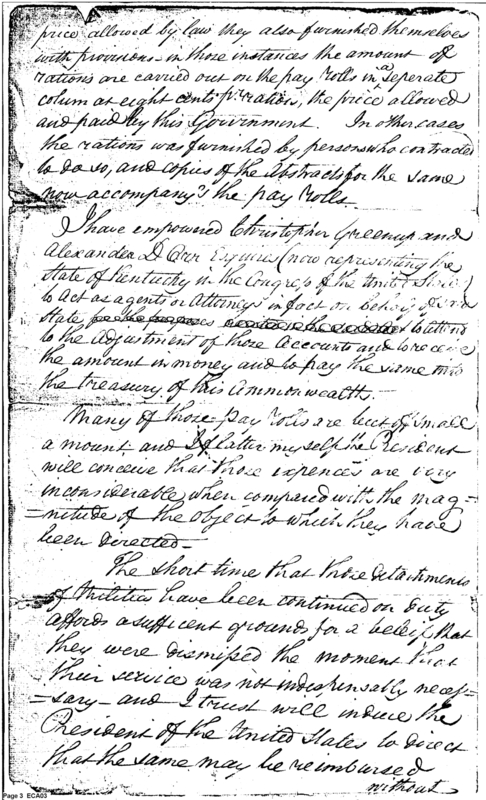 price allowed by law they also furnished themselves
with provisions in those instances the amount of
rations are carried out on the pay rolls in a seperate
colum at eight cents pr. ration, the price allowed
and paid by this Government. In other cases
the rations was furnished by persons who contracted
to do so, and copies of the Abstracts for the same
now accompany's the pay rolls
I have empowered Christopher Greenup and
Alexander D Orr Esquires (now representing the
State of Kentucky in the Congress of the United States)
to Act as agents or Attorneys in fact on behalf of said
State to attend
to the Adjustment of those Accounts and to receive
the amount in money and to pay the same into
the treasury of this Commonwealth.
Many of those pay rolls are but of small
amount and I flatter myself the President
will conceive that those expences are very
inconsiderable, when compared with the mag=
=nitude of the object to which they have
been directed—
The short time that those detachments
of Militia have been continued on duty
affords a sufficent grounds for a beleif that
they were dismissed the moment that
their service was not indispensably neces=
=sary— and I trust will induce the
President of the United States to direct
that the same may be reimbursed
without
Page 3 ECA03